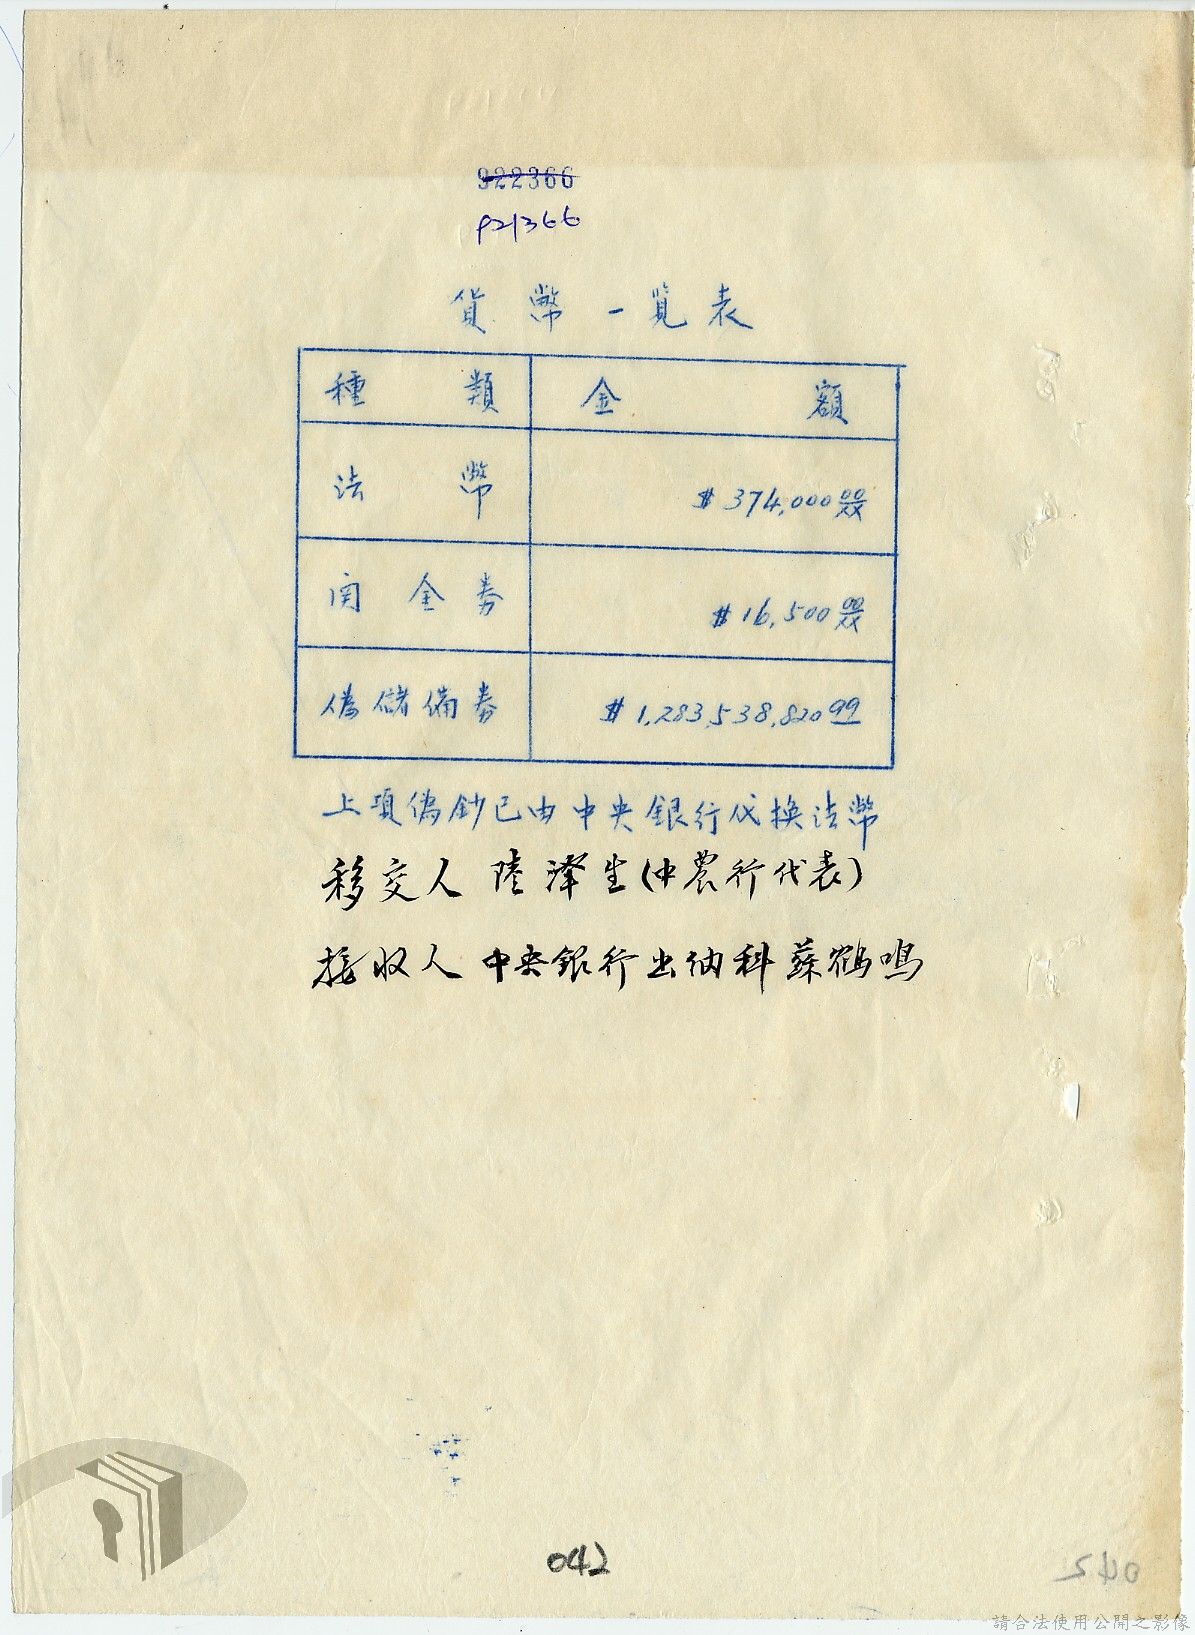 922366
921366
貨幣一覧表
種類 金額
法幣 $374,000 00/XX
関金券 $16,500 00/XX
偽儲備券 $1,283,538,820 99
上項偽鈔已由中央銀行代換法幣
移交人 陸澤生(中農行代表)
接收人 中央銀行出納科蘇鶴鳴
042
042
請合法使用公開之影像